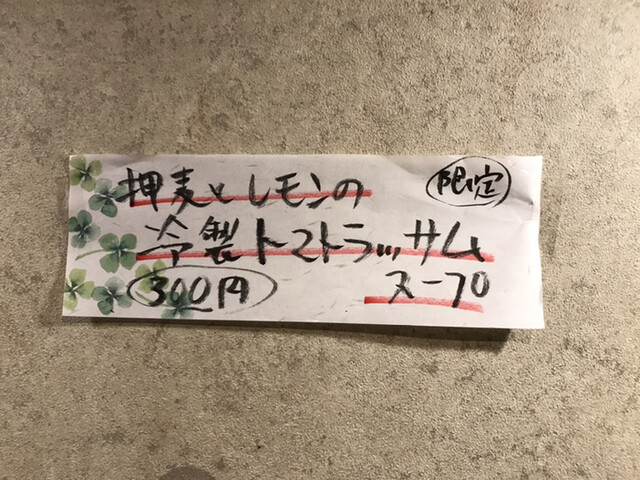 押麦とレモンの
限定
冷製トマトラッサム
300円
スープ